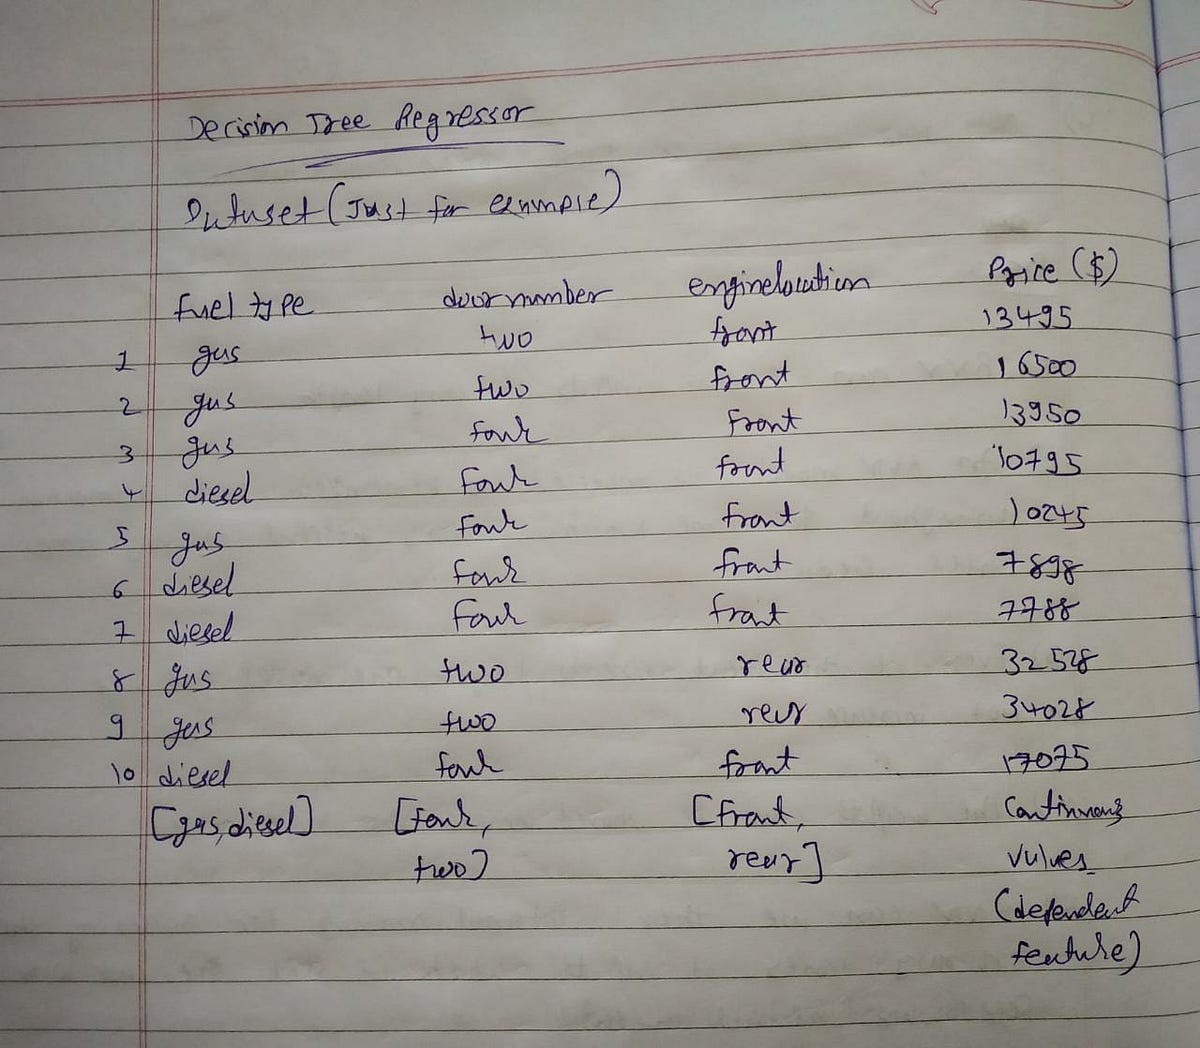 Decision Tree Regressor
Dataset (Just for example)
fuel type doornumber enginelocation Price ($)
1 gas two front 13495
2 gas two front 16500
3 gas four front 13950
4 diesel four front 10795
5 gas four front 10245
6 diesel four front 7898
7 diesel four front 7788
8 gas two rear 32528
9 gas two rear 34028
10 diesel four front 17075
[gas, diesel] [four, [front, Continuous
two] rear] values
(dependent
feature)